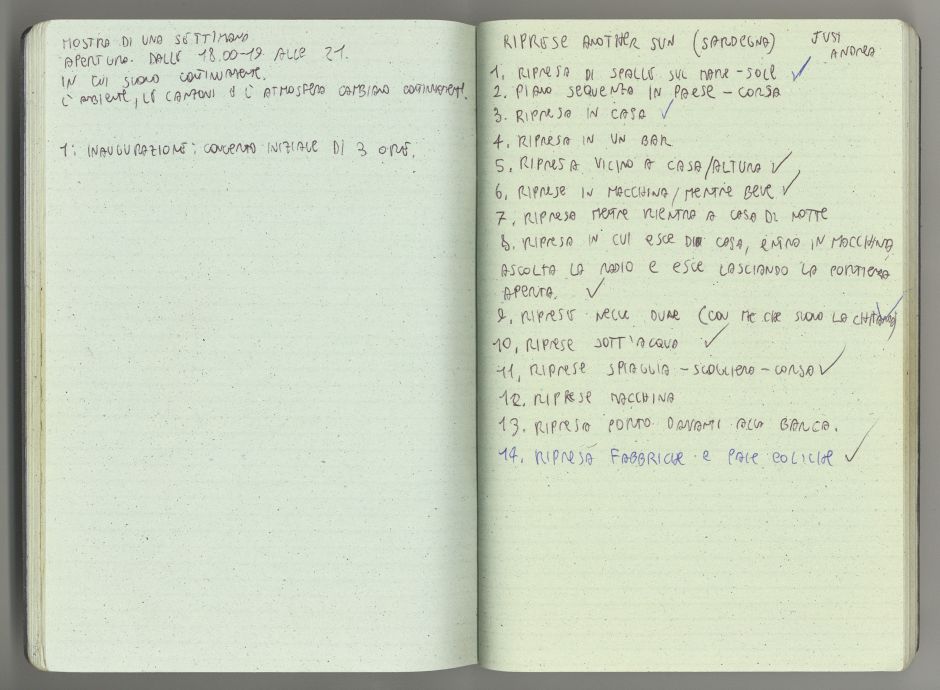 MOSTRA DI UNA SETTIMANA
APERTURA DALLE 18.00-19 ALLE 21.
IN CUI SUONO CONTINUAMENTE.
L'AMBIENTE, LE CANZONI E L'ATMOSFERA CAMBIANO CONTINUAMENTE.
1: INAUGURAZIONE: CONCERTO INIZIALE DI 3 ORE.
RIPRESE ANOTHER SUN (SARDEGNA)
JUSI
ANDREA
1. RIPRESA DI SPALLE SUL MARE-SOLE ✓
2. PIANO SEQUENZA IN PAESE - CORSA
3. RIPRESA IN CASA ✓
4. RIPRESA IN UN BAR
5. RIPRESA VICINO A CASA/ALTURA ✓
6. RIPRESE IN MACCHINA/MENTRE BEVE ✓
7. RIPRESA METRE RIENTRA A CASA DI NOTTE
8. RIPRESA IN CUI ESCE DA CASA, ENTRA IN MACCHINA,
ASCOLTA LA RADIO E ESCE LASCIANDO LA PORTIERA
APERTA. ✓
9. RIPRESE NELLE DUNE (CON ME CHE SUONO LA CHITARRA) ✓
10. RIPRESE SOTT'ACQUA ✓
11. RIPRESE SPIAGGIA - SCOGLIERA - CORSA ✓
12. RIPRESE MACCHINA
13. RIPRESA PORTO DAVANTI ALLA BARCA.
14. RIPRESA FABBRICHE E PALE EOLICHE ✓